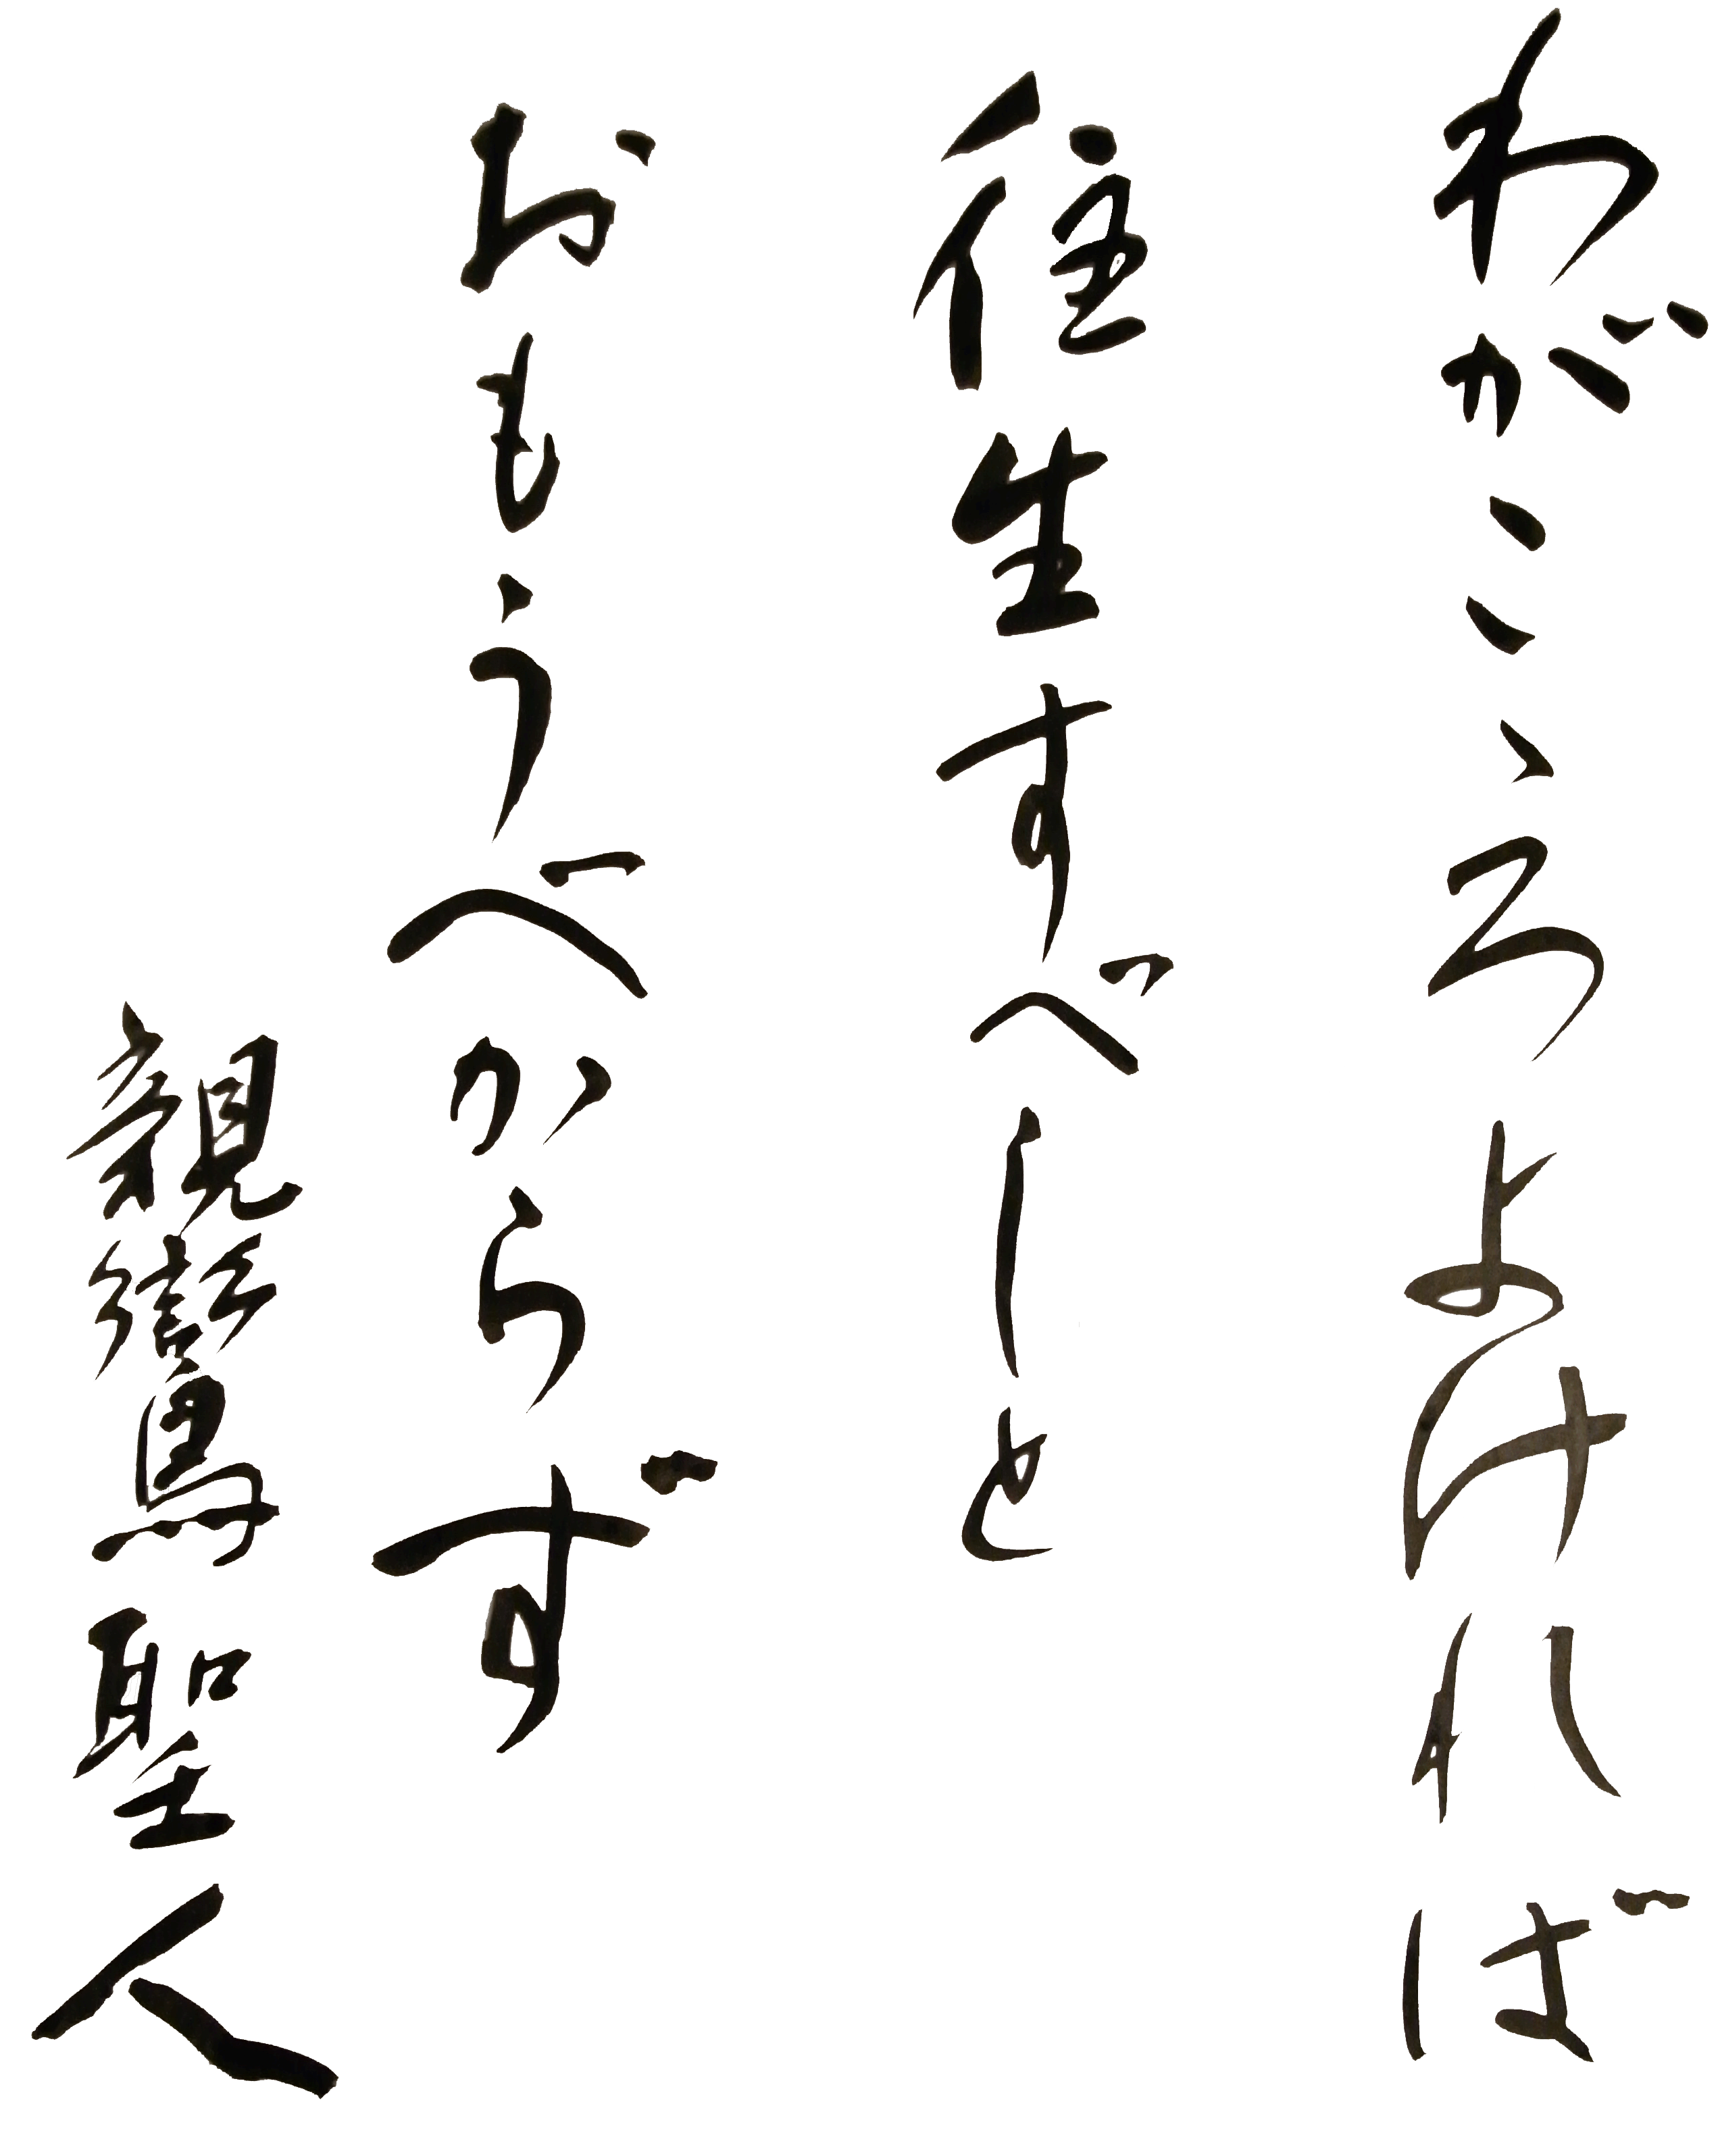 わがこゝろよければ
往生すべしと
おもうべからず
親鸞聖人